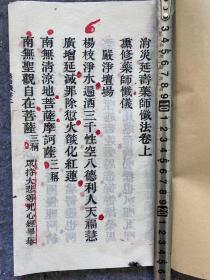 消災延壽藥師懺法卷上
熏修藥師懺儀
嚴淨壇場
楊枝淨水遍洒三千性空八德利人天福慧
廣增延滅罪除愆火燄化紅蓮
南無清涼地菩薩摩訶薩三稱
南無聖觀自在菩薩三稱 眾持大悲等咒心經畢舉